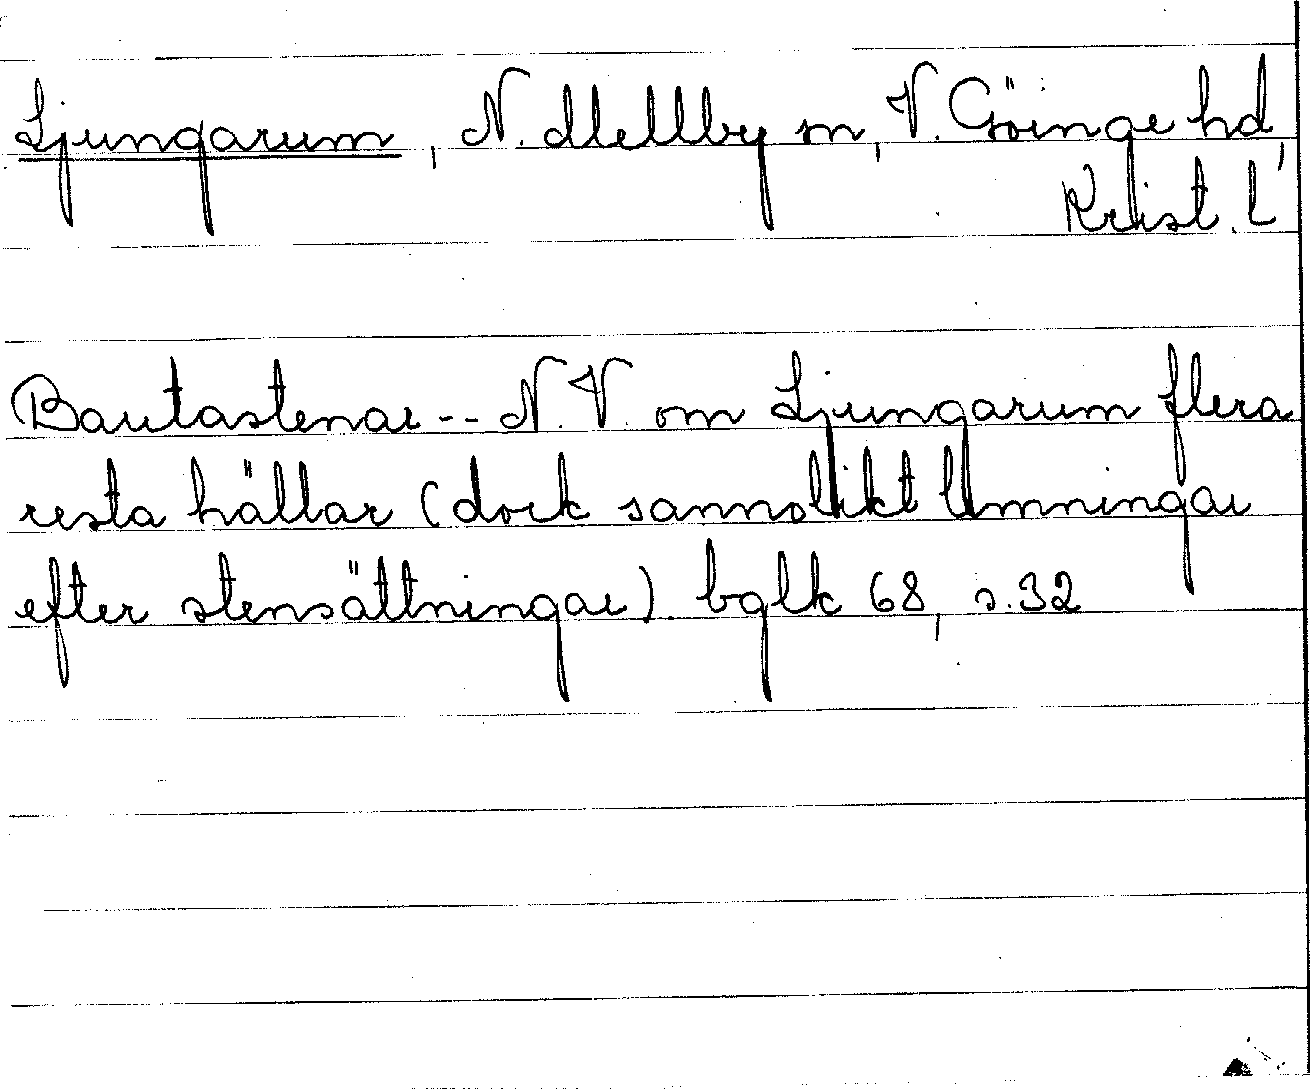 Ljungarum, N. Mellby sn, V. Göinge hd,
Krist. L
Bautastenar -- N.V. om Ljungarum flera
resta hällar (dock sannolikt lämningar
efter stensättningar). bglk 68, s. 32